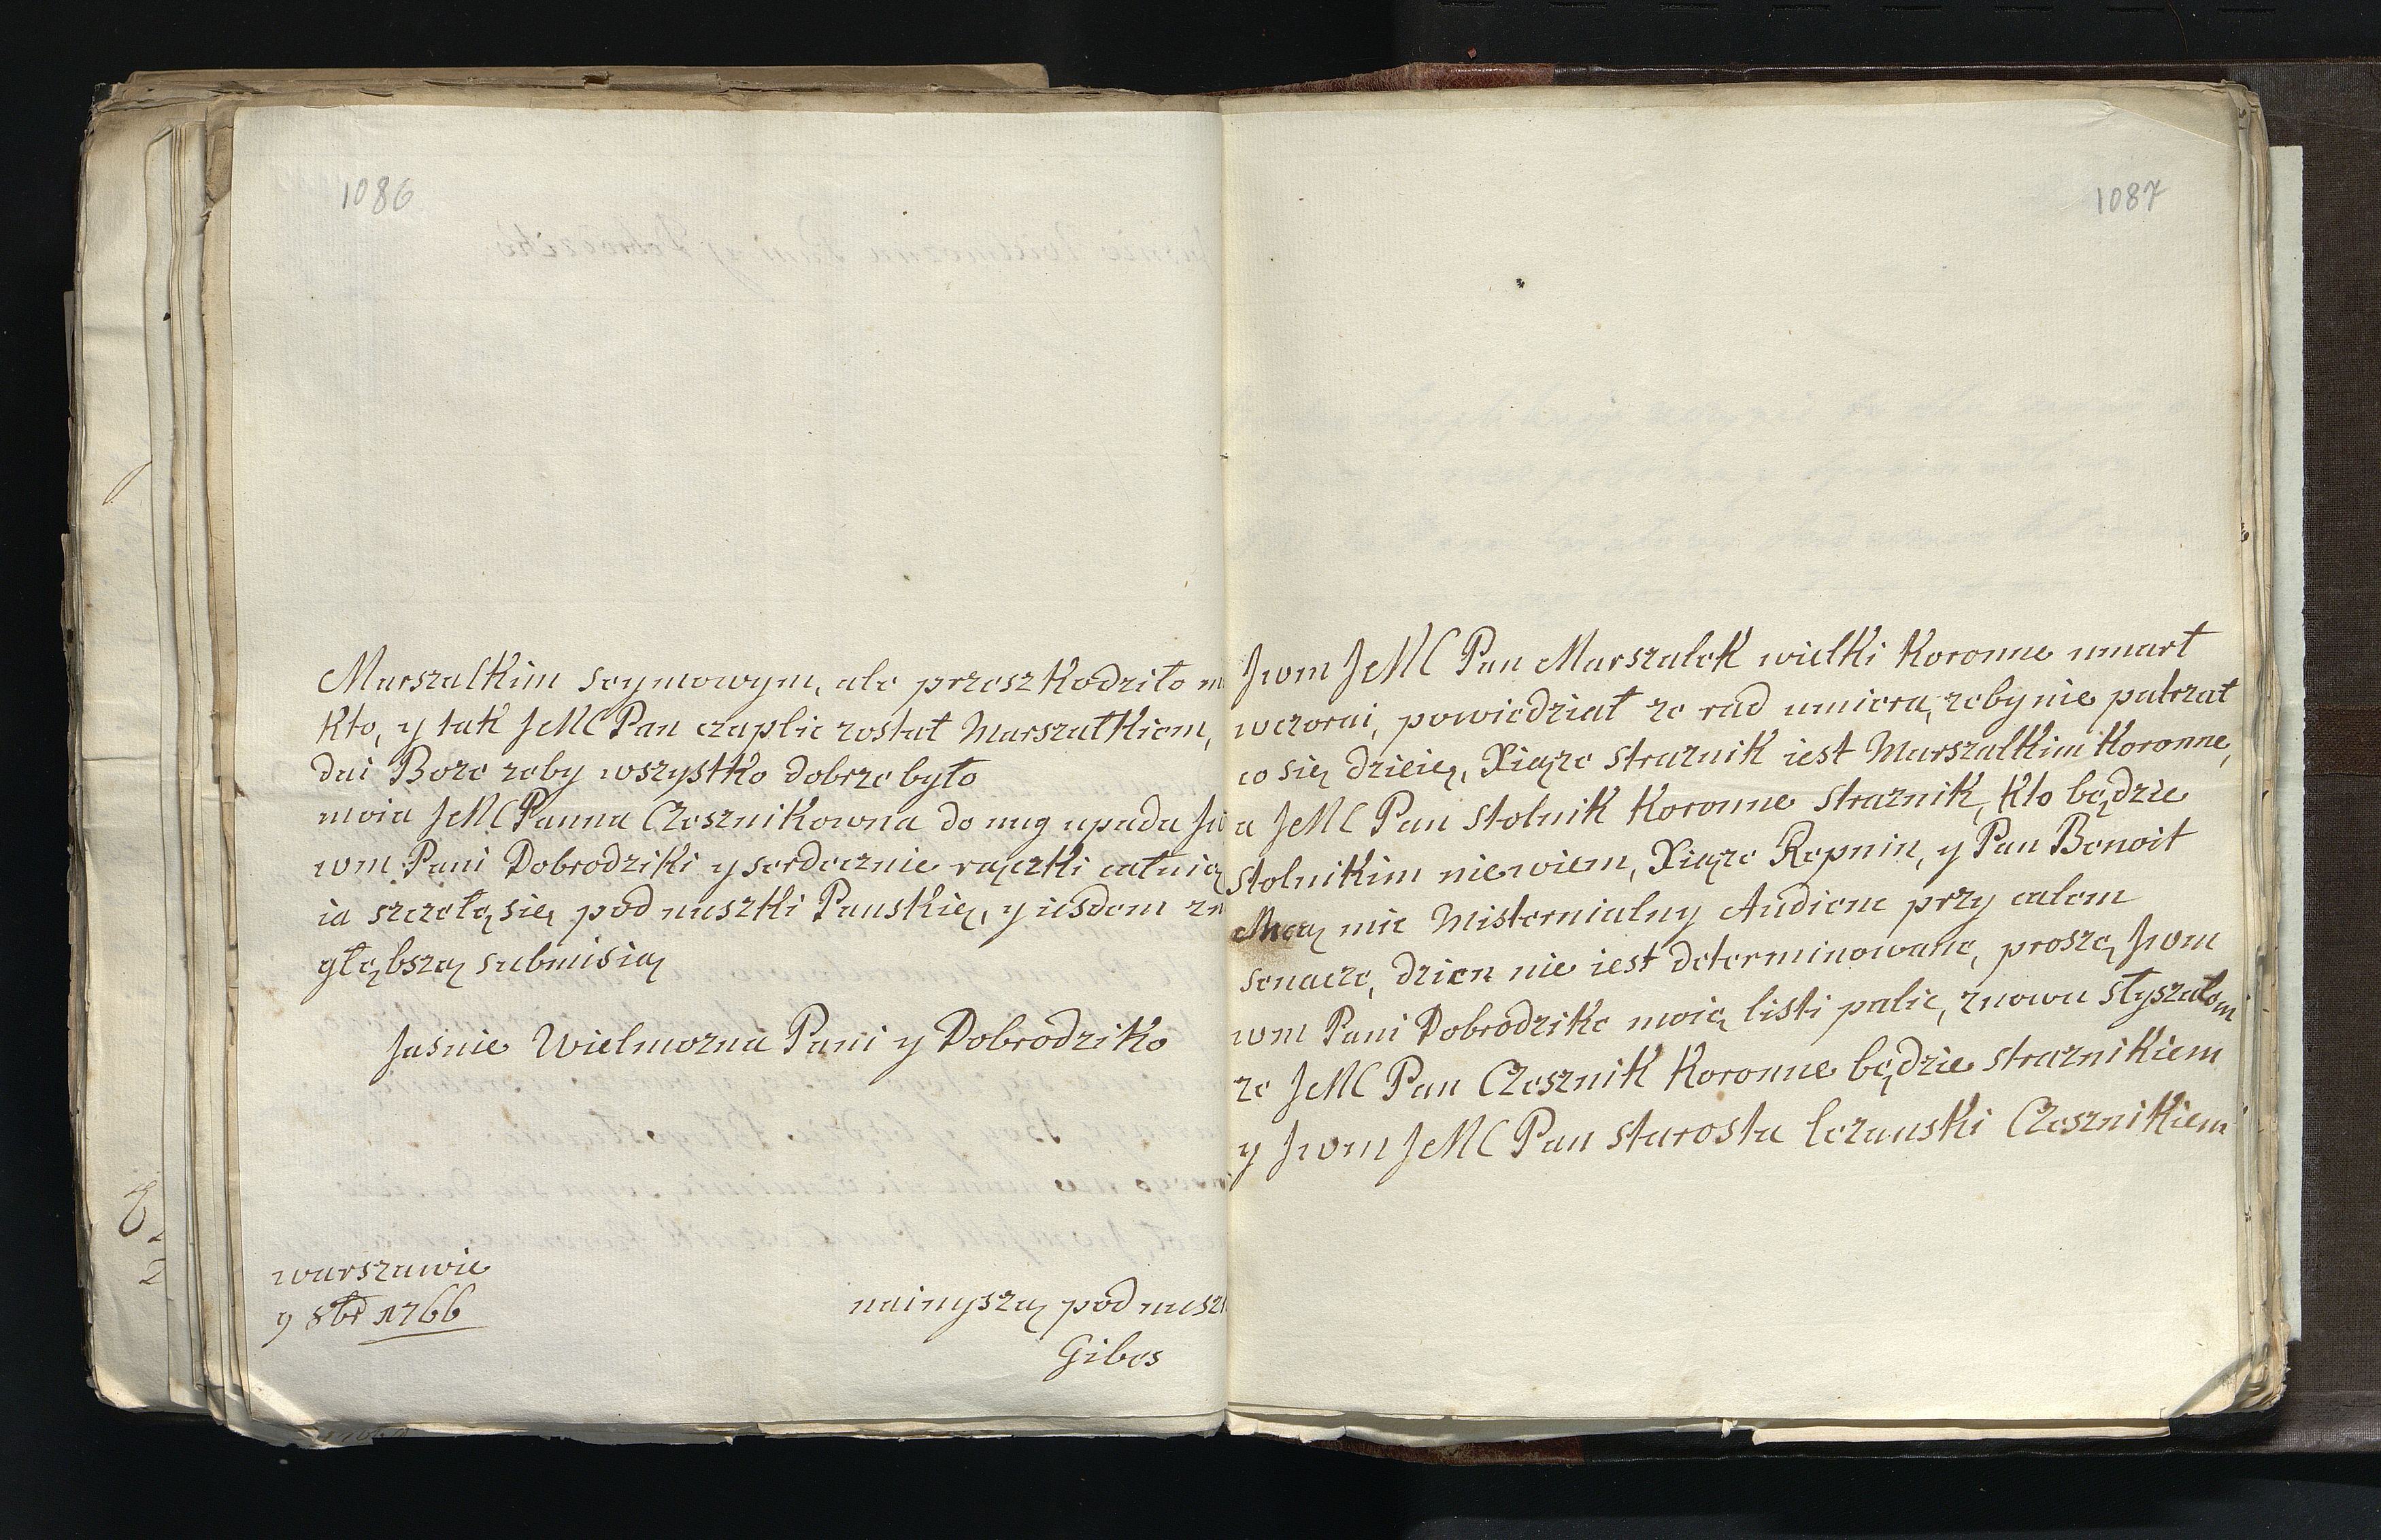 1086
Marszalkim seymowym, ale przeszkodziło
Kto, y tak JeMC Pan czaplic zostat Marszatkiem,
dai Boze zeby wszystko dobrze było
moia JeMC Panna Czesznikowna do nug upada
wm Pani Dobrodziki y serdecznie rączki całuię
ia sczelę się pod nuszki Panskię, y iesdem
głębszą submisią
Jaśnie Wielmozna Pani y Dobrodziko
warszawie
9 8br 1766
nainyszą pod
Gibes
1087
Jwm JeMC Pan Marszalek wielki Koronne umart
wczorai, powiedział ze rad umiera, zeby nie patrzat
co się dzieię, Xiąze straznik iest Marszalkim Koronne,
a JeMC Pan stolnik Koronne straznik, Kto będzie
stolnikim niewiem, Xiąze Repnin, y Pan Benoit
Maią mic Misternialny Audienc przy calem
senacze, dzien nie iest determinowane, proszę Jwm
wm Pani Dobrodzike moię listi palic, znowu słyszałem
ze JeMC Pan Czesznik Koronne będzie straznikiem
y Jwm JeMC Pan starosta lezanski Czesznikiem